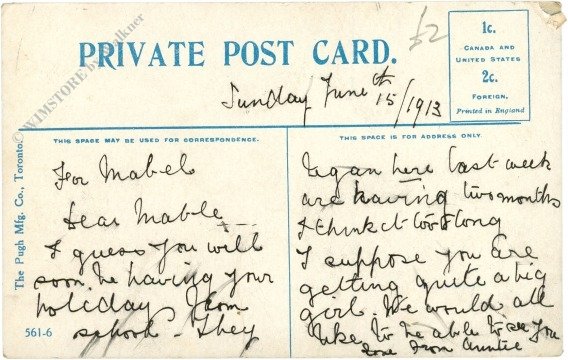 £2
PRIVATE POST CARD.
1c.
CANADA AND
UNITED STATES
2c.
FOREIGN.
Printed in England
Sunday June 15th/1913
THIS SPACE MAY BE USED FOR CORRESPONDENCE.
THIS SPACE IS FOR ADDRESS ONLY.
For Mabel
Dear Mable
I guess you will
soon be having your
holiday from
school - They
began here last week
are having two months
& I think it too long
I suppose you are
getting quite a big
girl. We would all
like to be able to see you
love from Auntie
The Pugh Mfg. Co., Toronto.
561-6
© WIMSTORE by Falkner